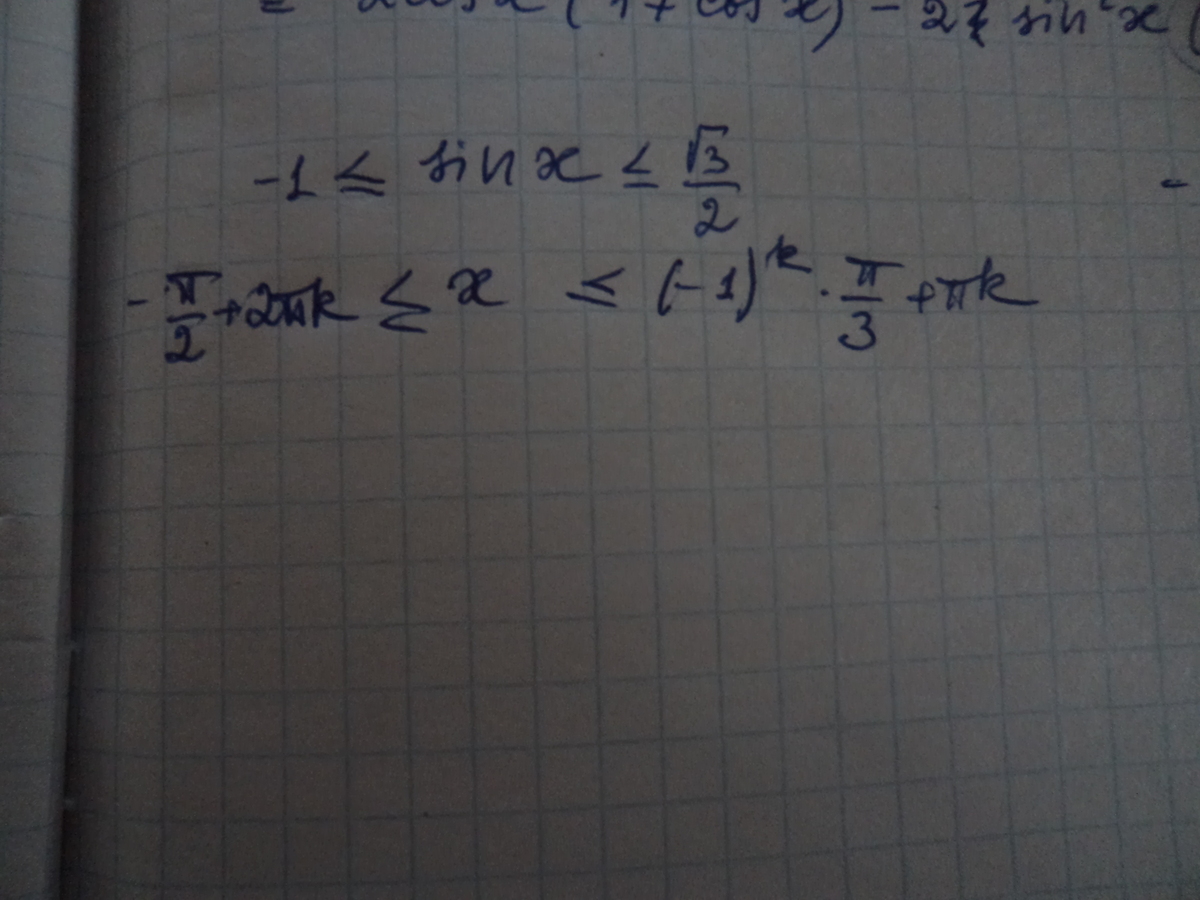 (1 + cos x) - 2 sin²x (
-1 ≤ sin x ≤ √3/2
-π/2 + 2πk ≤ x ≤ (-1)^k · π/3 + πk